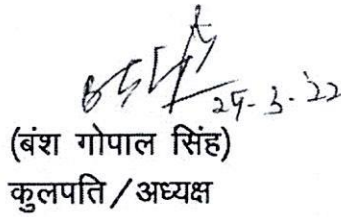 29-3-'22
(बंश गोपाल सिंह)
कुलपति/अध्यक्ष